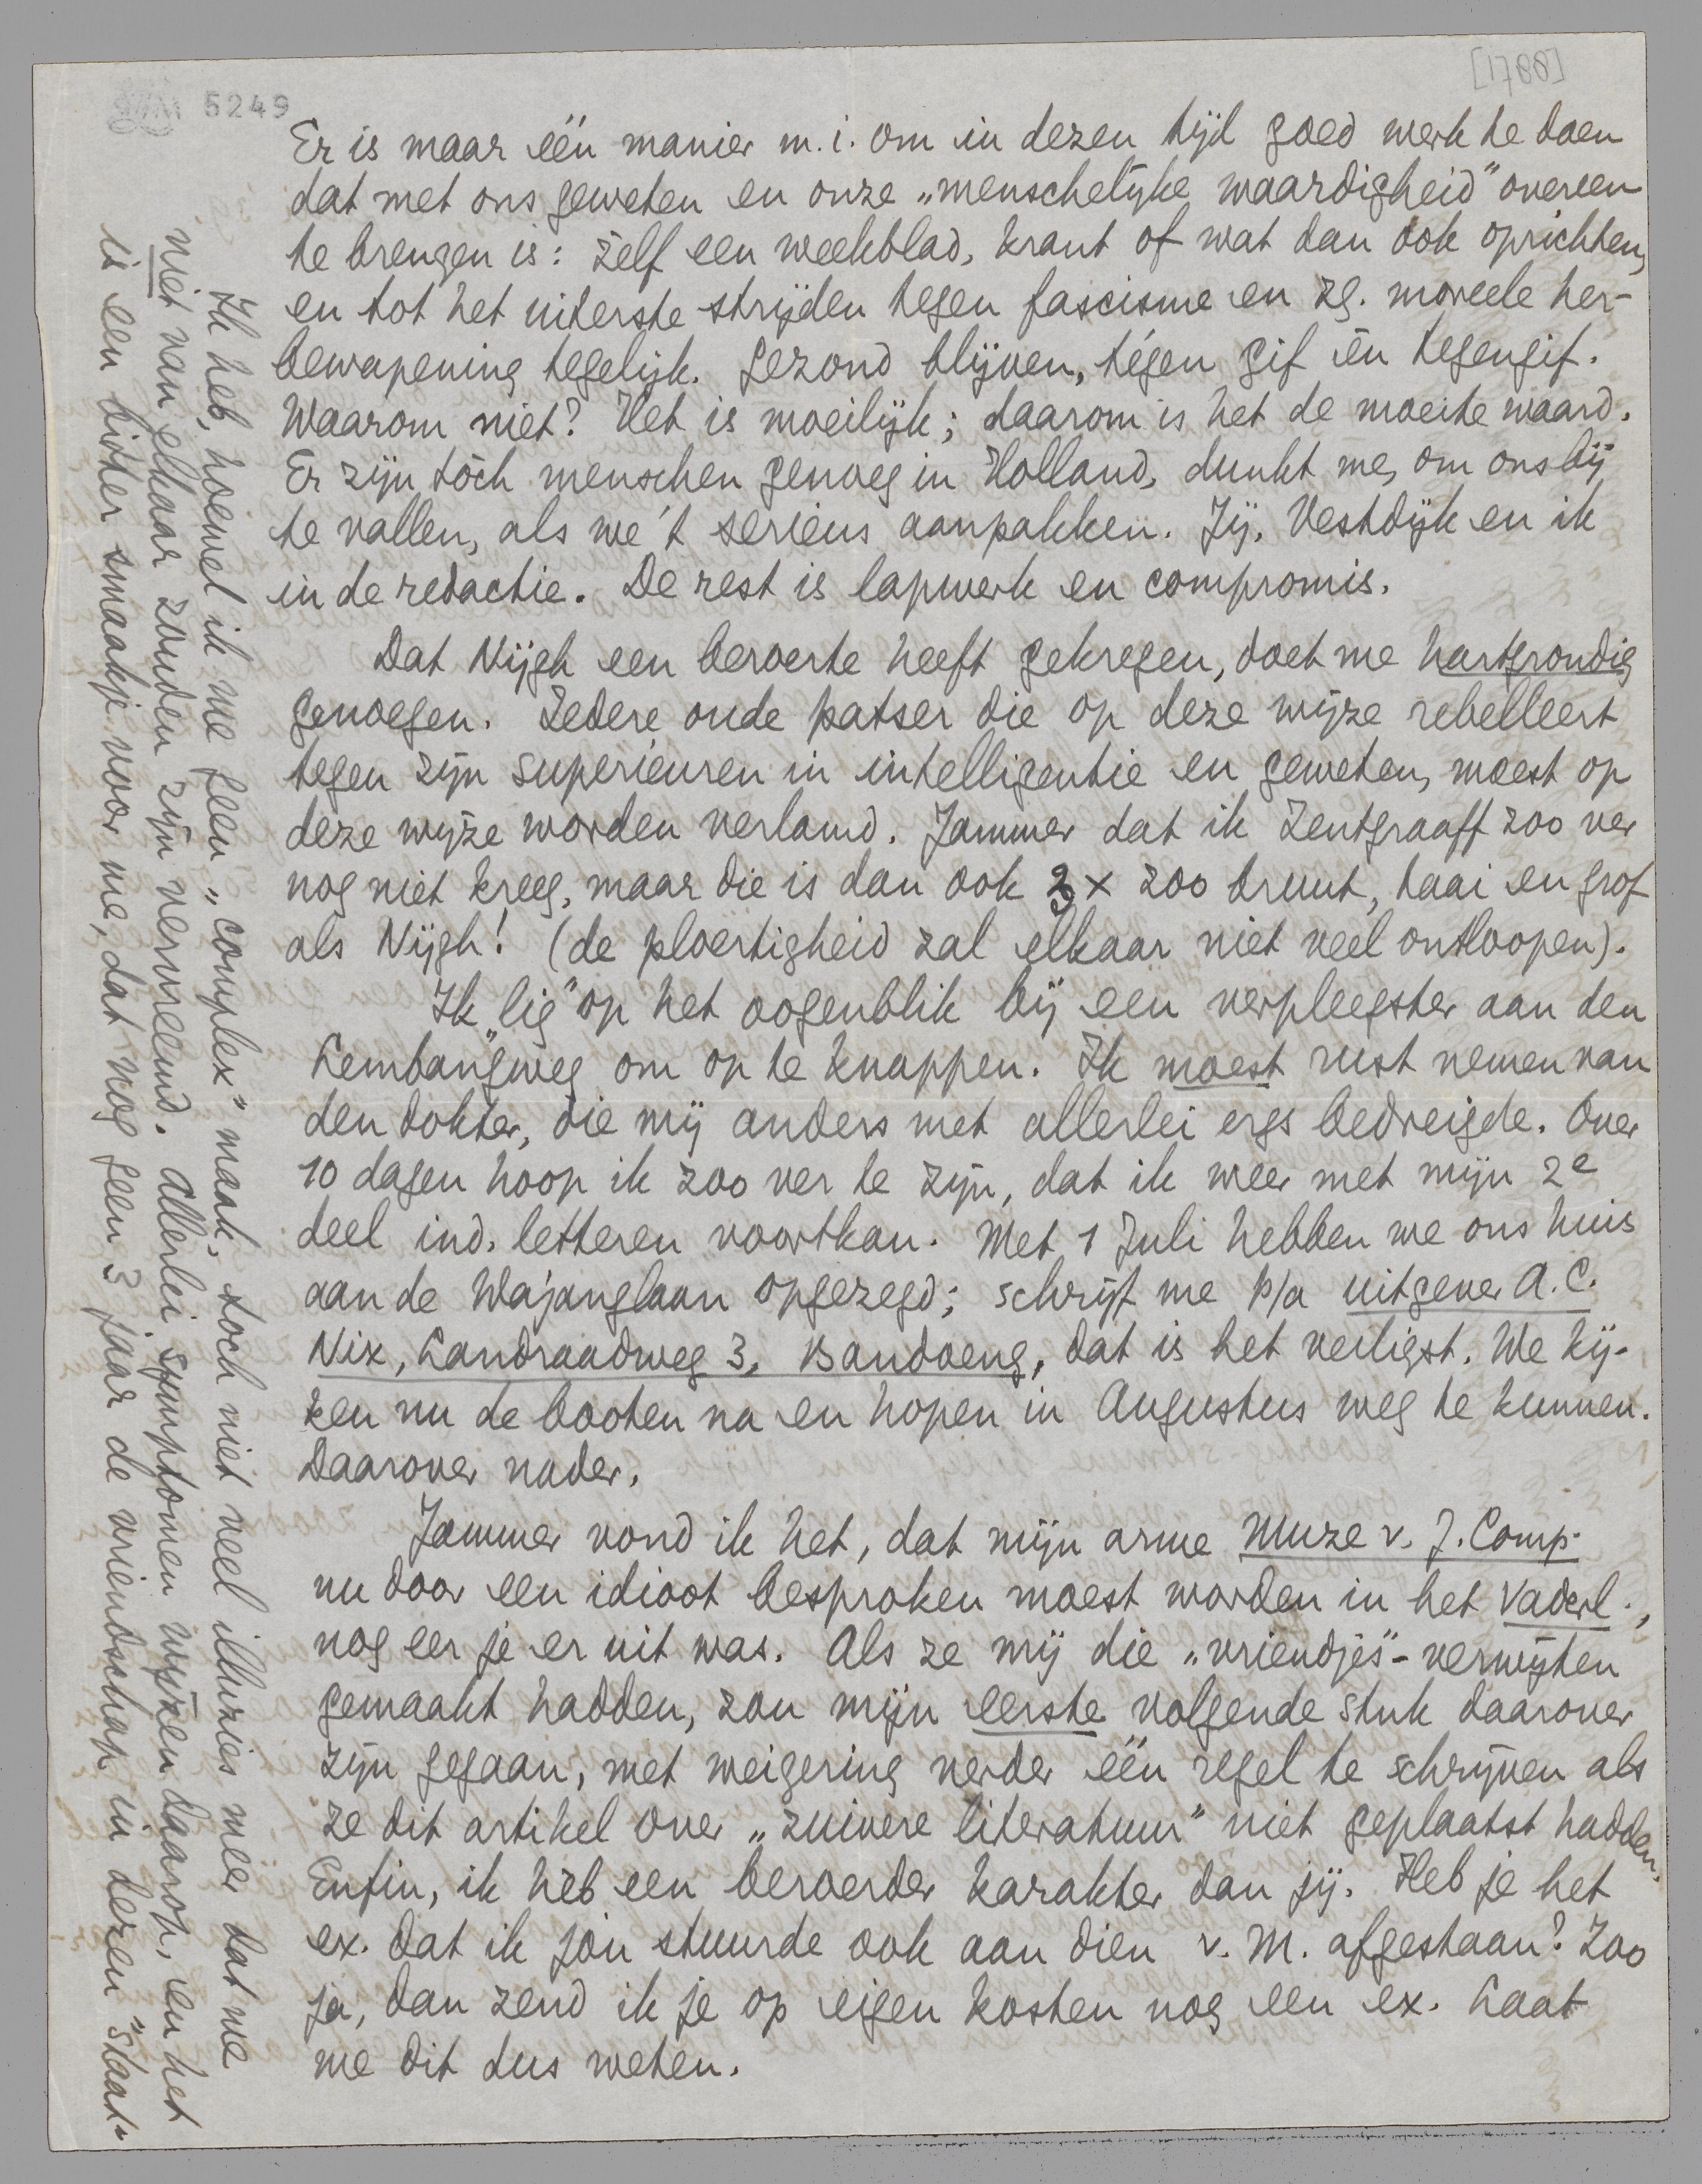 [1788]
5249
Er is maar één manier m.i. om in dezen tijd goed werk te doen
dat met ons geweten en onze „menschelijke waardigheid" overeen
te brengen is: zelf een weekblad, krant of wat dan ook oprichten,
en tot het uiterste strijden tegen fascisme en zg. moreele her-
bewapening tegelijk. Gezond blijven, tégen gif én tegengif.
Waarom niet? Het is moeilijk; daarom is het de moeite waard.
Er zijn tòch menschen genoeg in Holland, dunkt me, om ons bij
te vallen, als we 't serieus aanpakken. Jij, Vestdijk en ik
in de redactie. De rest is lapwerk en compromis.
Dat Nijgh een beroerte heeft gekregen, doet me hartgrondig
genoegen. Iedere oude patser die op deze wijze rebelleert
tegen zijn superieuren in intelligentie en geweten, moest op
deze wijze worden verlamd. Jammer dat ik Zentgraaff zoo ver
nog niet kreeg, maar die is dan ook 3 x zoo bruut, taai en grof
als Nijgh! (de ploertigheid zal elkaar niet veel ontloopen).
Ik „lig" op het oogenblik bij een verpleegster aan den
Lembangweg om op te knappen. Ik moest rust nemen van
den dokter, die mij anders met allerlei ergs bedreigde. Over
10 dagen hoop ik zoo ver te zijn, dat ik weer met mijn 2e
deel ind. letteren voortkan. Met 1 Juli hebben we ons huis
aan de Wajanglaan opgezegd; schrijf me p/a uitgever A.C.
Nix, Landraadweg 3, Bandoeng, dat is het veiligst. We kij-
ken nu de booten na en hopen in Augustus weg te kunnen.
Daarover nader.
Jammer vond ik het, dat mijn arme Muze v. J. Comp.
nu door een idioot besproken moest worden in het Vaderl.,
nog eer je er uit was. Als ze mij die „vriendjes"-verwijten
gemaakt hadden, zou mijn eerste volgende stuk daarover
zijn gegaan, met weigering verder één regel te schrijven als
ze dit artikel over „zuivere literatuur" niet geplaatst hadden.
Enfin, ik heb een beroerder karakter dan jij. Heb je het
ex. dat ik jou stuurde ook aan dien v. M. afgestaan? Zoo
ja, dan zend ik je op eigen kosten nog een ex. Laat
me dit dus weten.
Ik heb, hoewel ik me geen „complex" maak, toch niet veel illuzies meer dat we
niet van elkaar zouden zijn vervreemd. Allerlei symptomen wijzen daarop, en het
is een bitter smaakje voor me, dat nog geen 3 jaar de vriendschap in dezen „staat"